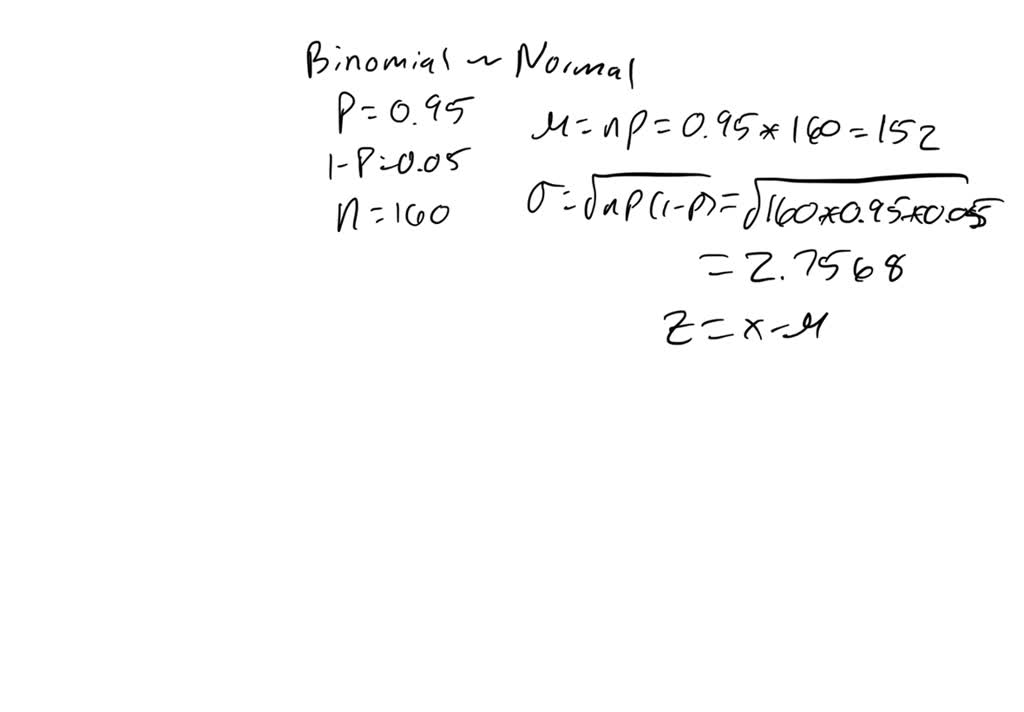 Binomial ~ Normal
P = 0.95
μ = np = 0.95 * 160 = 152
1-P = 0.05
n = 160
σ = √np(1-p) = √160*0.95*0.05
= 2.7568
z = x-μ